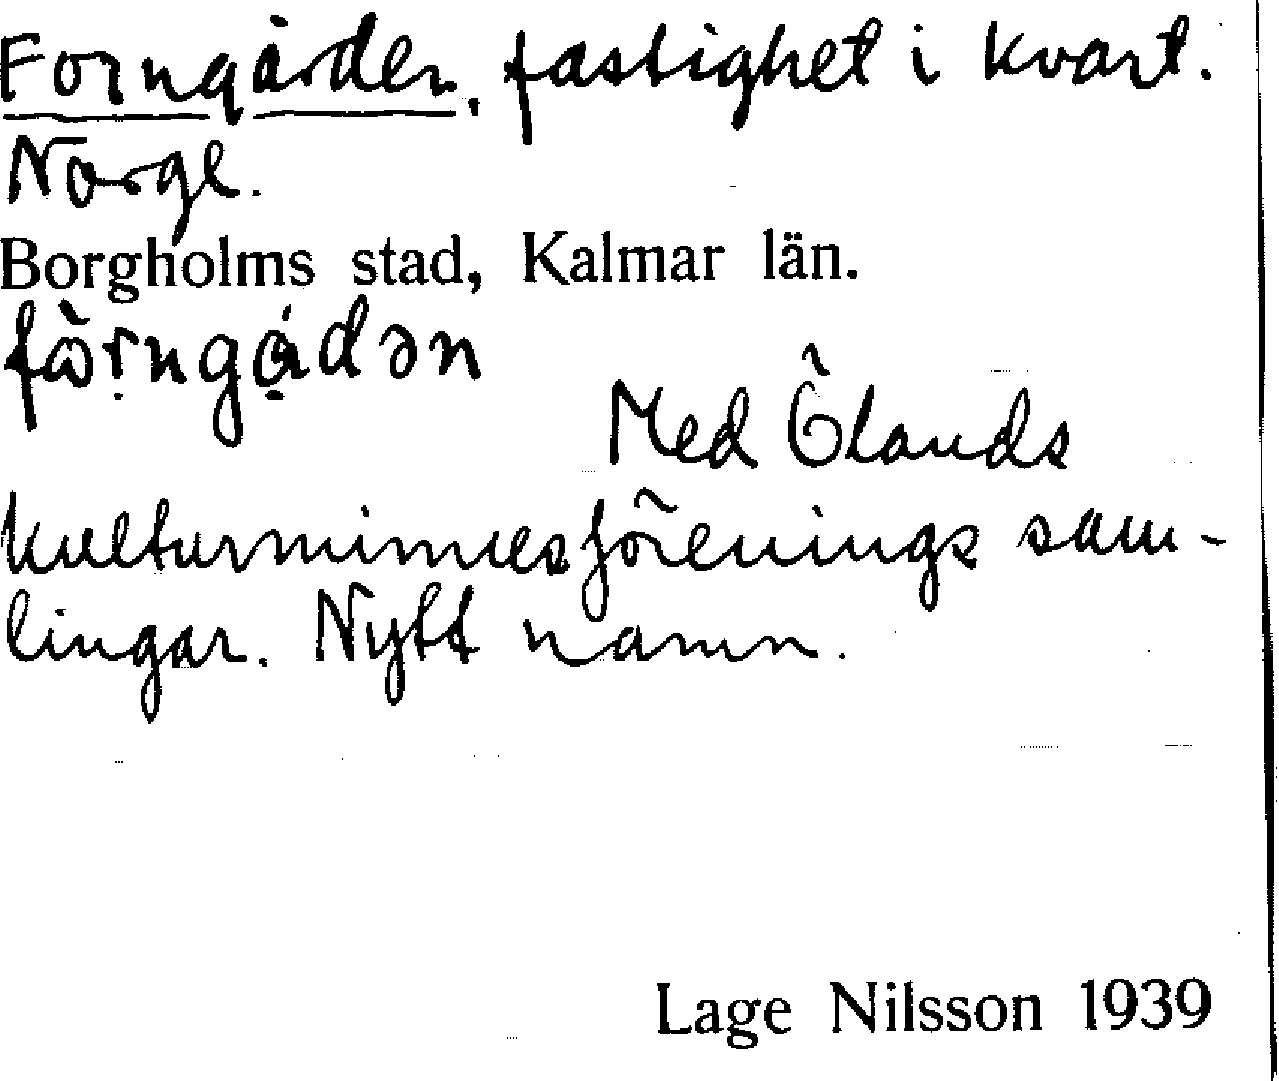 Forngården, fastighet i kvart.
Norge.
Borgholms stad, Kalmar län.
fòrngádən
Med Ölands
kulturminnesförenings sam-
lingar. Nytt namn.
Lage Nilsson 1939